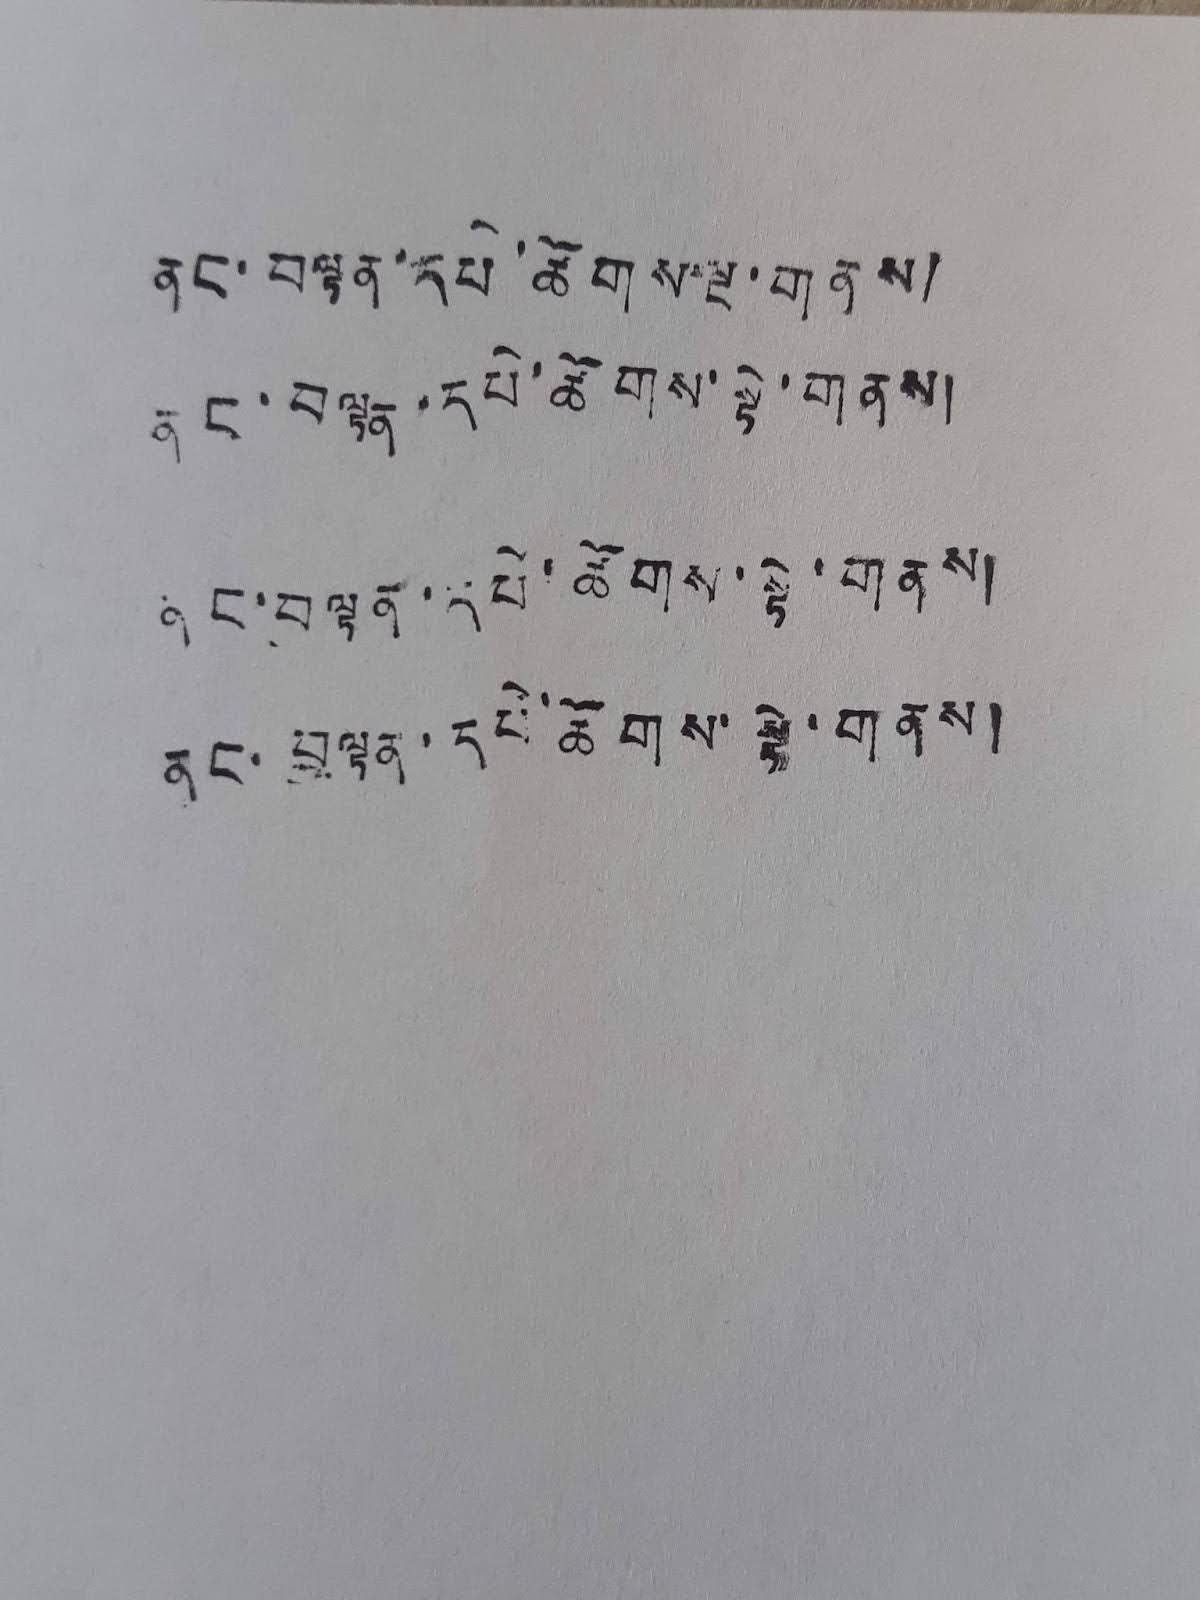 ནང་བལྟན་དཔེ་ཚོགས་ལྟ་གནས།
ནང་བལྟན་དཔེ་ཚོགས་ལྟེ་གནས།
ནང་བལྟན་དཔེ་ཚོགས་ལྟེ་གནས།
ནང་བལྟན་དཔེ་ཚོགས་ལྟེ་གནས།